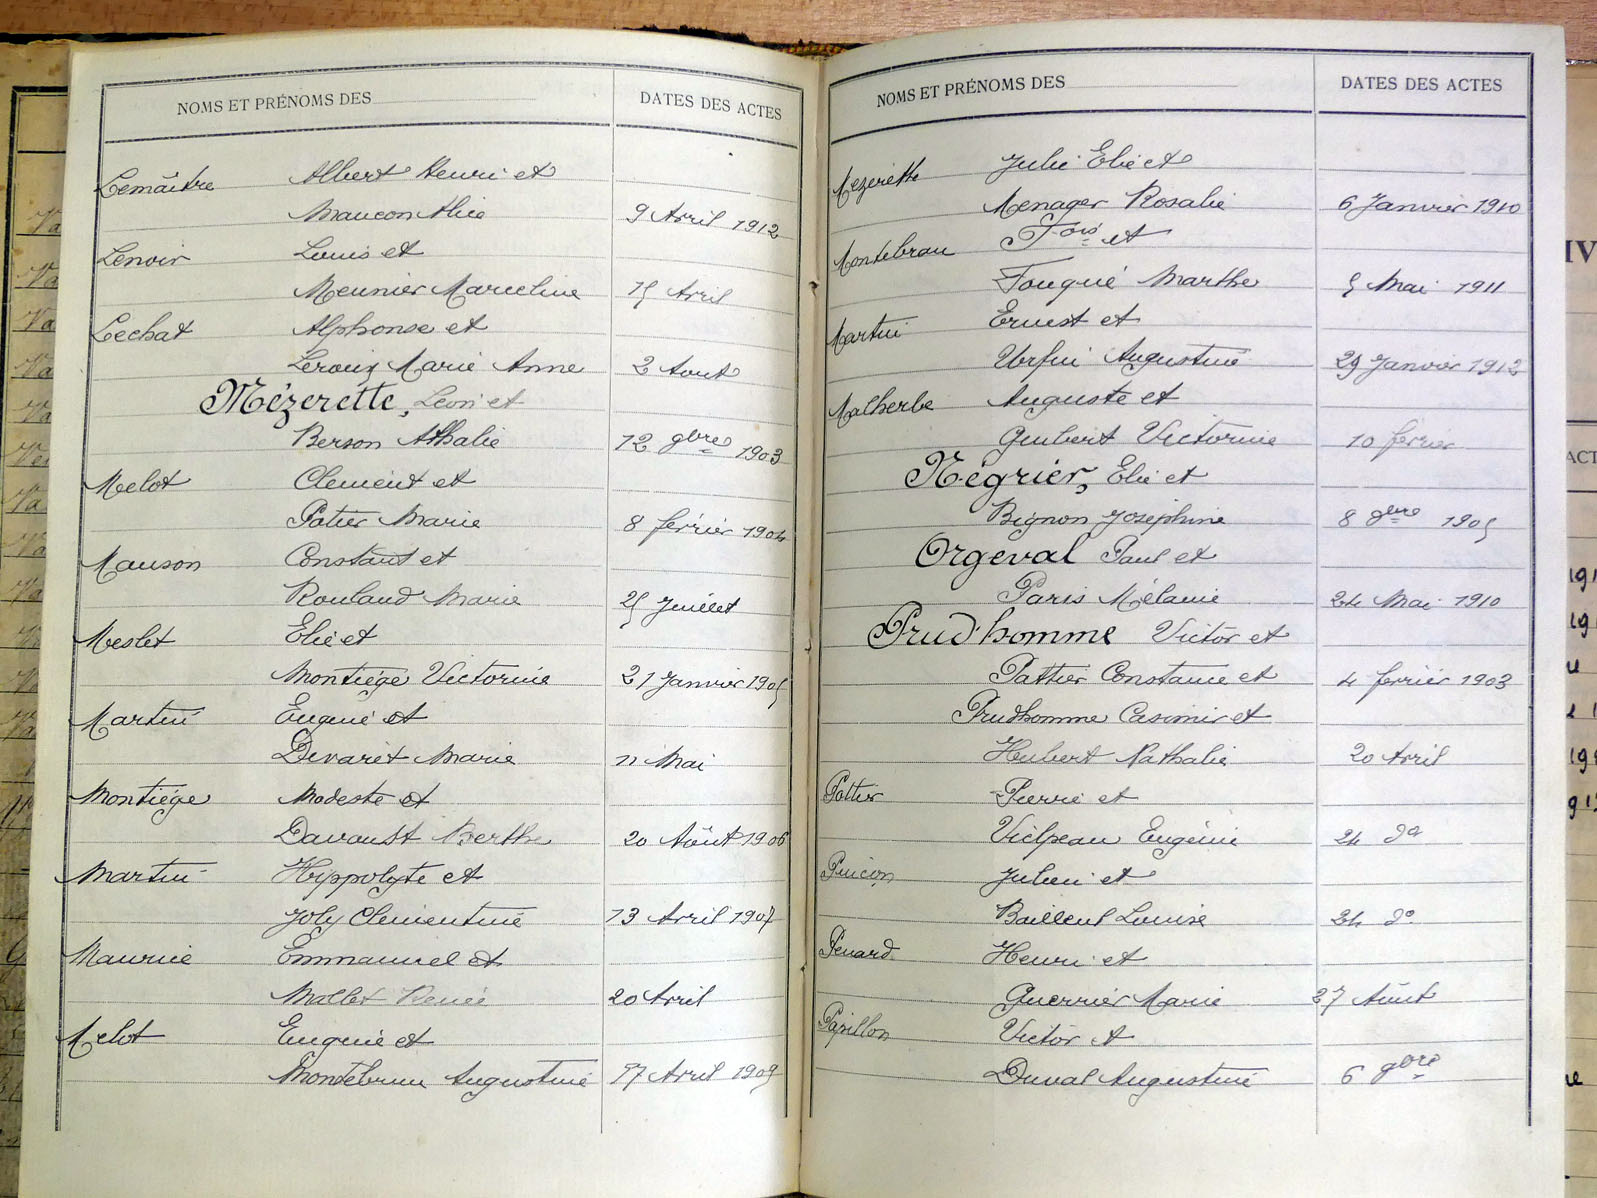 NOMS ET PRÉNOMS DES
DATES DES ACTES
Lemaître Albert Henri et
Maucon Alice 9 Avril 1912
Lenoir Louis et
Meunier Marceline 15 Avril
Lechat Alphonse et
Leroux Marie Anne 2 Aout
Mézerette, Léon et
Berson Athalie 12 9bre 1903
Melot Clement et
Potier Marie 8 février 1904
Mauson Constant et
Rouland Marie 25 Juillet
Meslet Elie et
Montiége Victorine 21 Janvier 1905
Martin Eugene et
Devaret Marie 11 Mai
Montiége Modeste et
Davoust Berthe 20 Août 1906
Martin Hippolyte et
Joly Clementine 13 Avril 1907
Maurice Emmanuel et
Mallet Renée 20 Avril
Melot Eugenie et
Montebrun Augustine 17 Avril 1909
NOMS ET PRÉNOMS DES
DATES DES ACTES
Mezerette Julie Elie et
Menager Rosalie 6 Janvier 1910
Montebrau Fois et
Fouqué Marthe 5 Mai 1911
Martin Ernest et
Urfin Augustine 29 Janvier 1912
Malherbe Auguste et
Guibert Victorine 10 fevrier
Négrier, Elie et
Bignon Josephine 8 1905
Orgeval Paul et
Paris Mélanie 24 Mai 1910
Prud'homme Victor et
Pattier Constance et 4 fevrier 1903
Prudhomme Casimir et
Hubert Nathalie 20 Avril
Pottier Pierre et
Vielpeau Eugénie 24 do
Pinçon Julien et
Bailleul Louise 24 do
Penard Henri et
Guerrier Marie 27 Août
Papillon Victor et
Duval Augustine 6 9bre